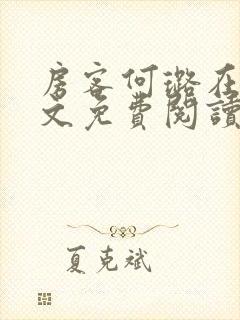 房客何璐在
文免費閱讀
夏克斌